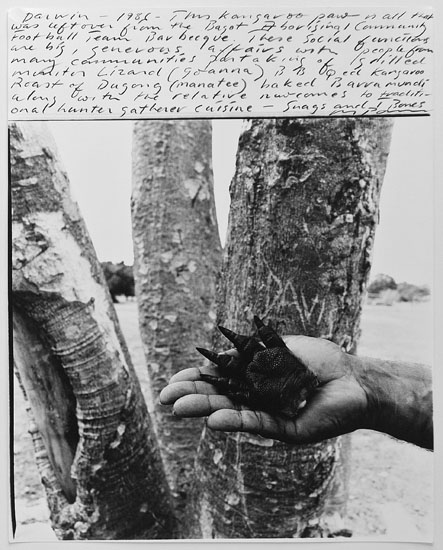 Darwin - 1986 - This kangaroo paw is all that
was leftover from the Bagot Aboriginal Community
Football Team Barbecque. These social functions
are big, generous affairs with people from
many communities partaking of grilled
monitor Lizard (goanna) B B Q ed Kangaroo
Roast of Dugong (manatee) baked Barramundi
along with the relative newcomes to traditi-
onal hunter gatherer cuisine - Snags and T Bones
DAVI